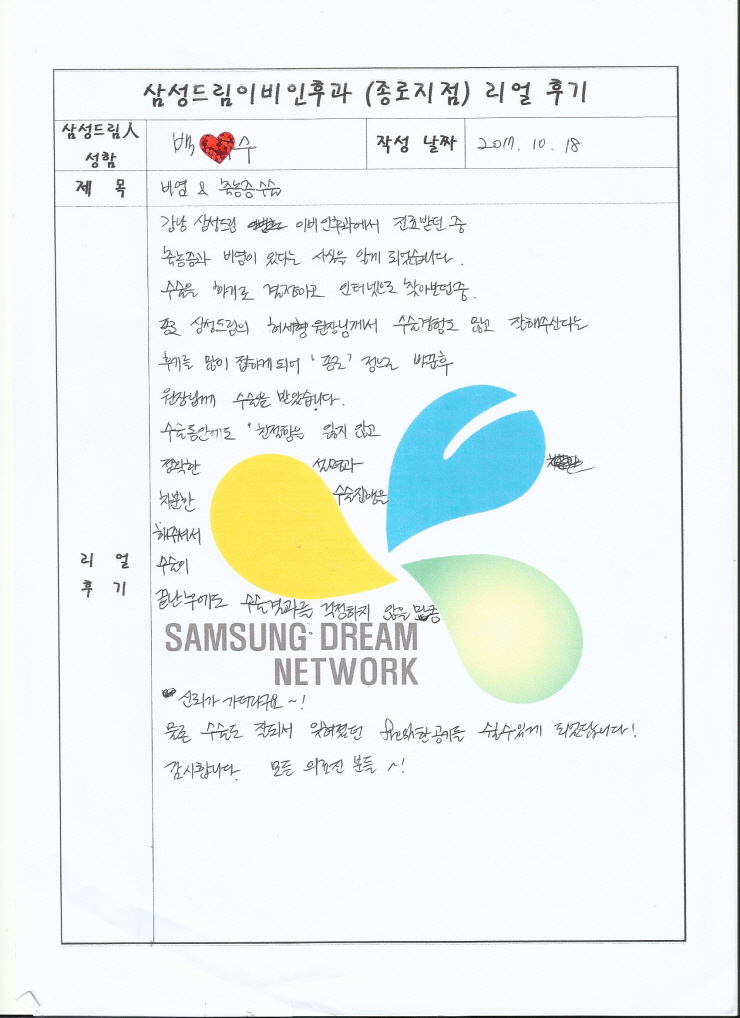 삼성드림이비인후과 (종로지점) 리얼 후기
삼성드림人 성함
백 수
작성 날짜
2017. 10. 18
제 목
비염 & 축농증수술
리 얼 후 기
강남 삼성드림 이비인후과에서 진료받던 중
축농증과 비염이 있다는 사실을 알게 되었습니다.
수술을 하기로 결정하고 인터넷으로 찾아보던중.
삼성드림의 허세형 원장님께서 수술경험도 많고 잘해주신다는
후기를 많이 접하게 되어 '종로' 점으로 바꾼후
원장님께 수술을 받았습니다.
수술동안에도 친절함을 잃지 않고
정확한 설명과
차분한 수술진행을
해주셔서
수술이
끝난후에도 수술결과를 걱정하지 않을 만큼
SAMSUNG DREAM
NETWORK
신뢰가 가더라구요~!
물론 수술도 잘되서 잊혀졌던 공기를 쉴수있게 되었답니다!
감사합니다. 모든 의료진 분들 ~!